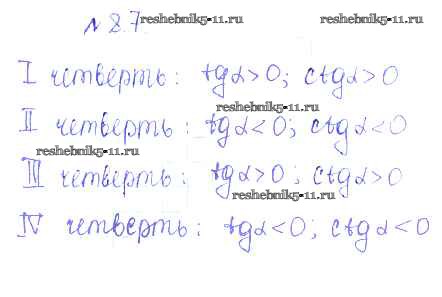 № 8.7. reshebnik5-11.ru reshebnik5-11.ru
I четверть: tgα>0; ctgα>0
reshebnik5-11.ru
II четверть: tgα<0; ctgα<0
reshebnik5-11.ru
III четверть: tgα>0; ctgα>0
reshebnik5-11.ru
IV четверть: tgα<0; ctgα<0